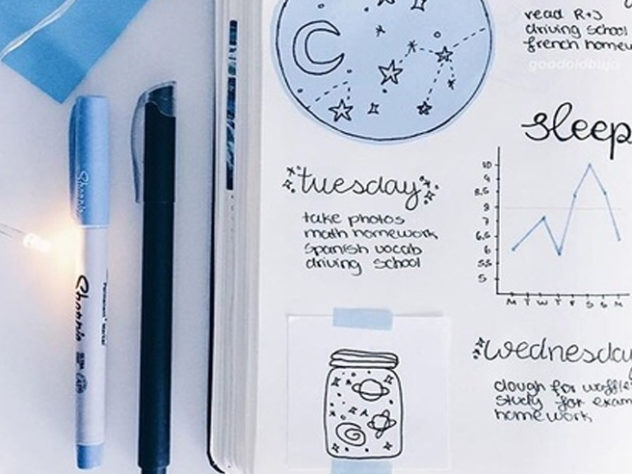 read R+J
driving school
french homew
goodoldbujo
sleep
tuesday
take photos
math homework
spanish vocab
driving school
10
9
8,5
8
7
6,5
6
5,5
5
M T W T F S S M
wednesday
dough for waffle
study for exam
homework
Sharpie
Sharpie